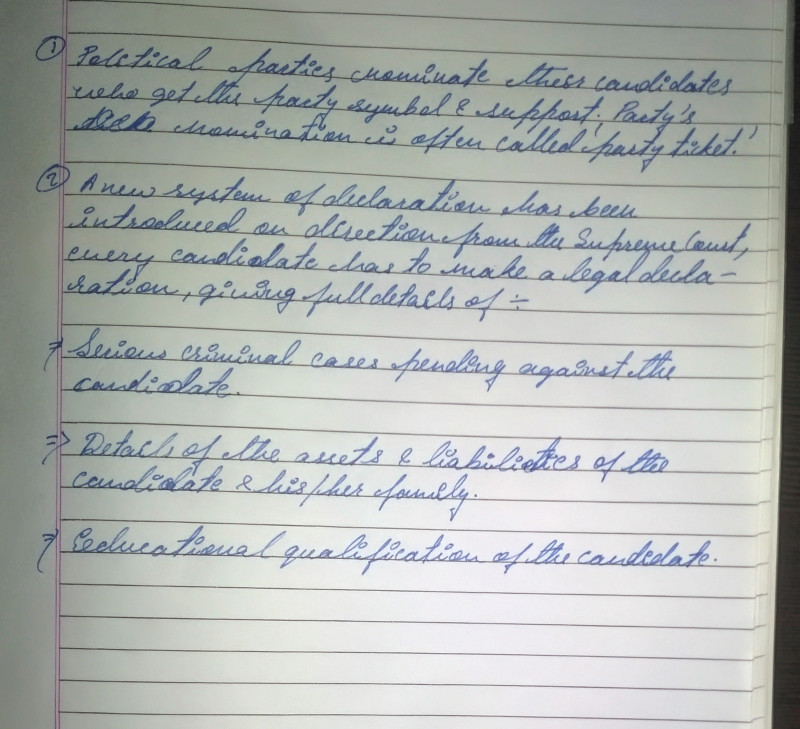 ① Political parties nominate their candidates
who get the party symbol & support; Party's
nomination is often called 'party ticket.'
② A new system of declaration has been
introduced on direction from the Supreme Court,
every candidate has to make a legal decla-
ration, giving full details of :-
⇒ Serious criminal cases pending against the
candidate.
⇒ Details of the assets & liabilities of the
candidate & his/her family.
⇒ Educational qualification of the candidate.